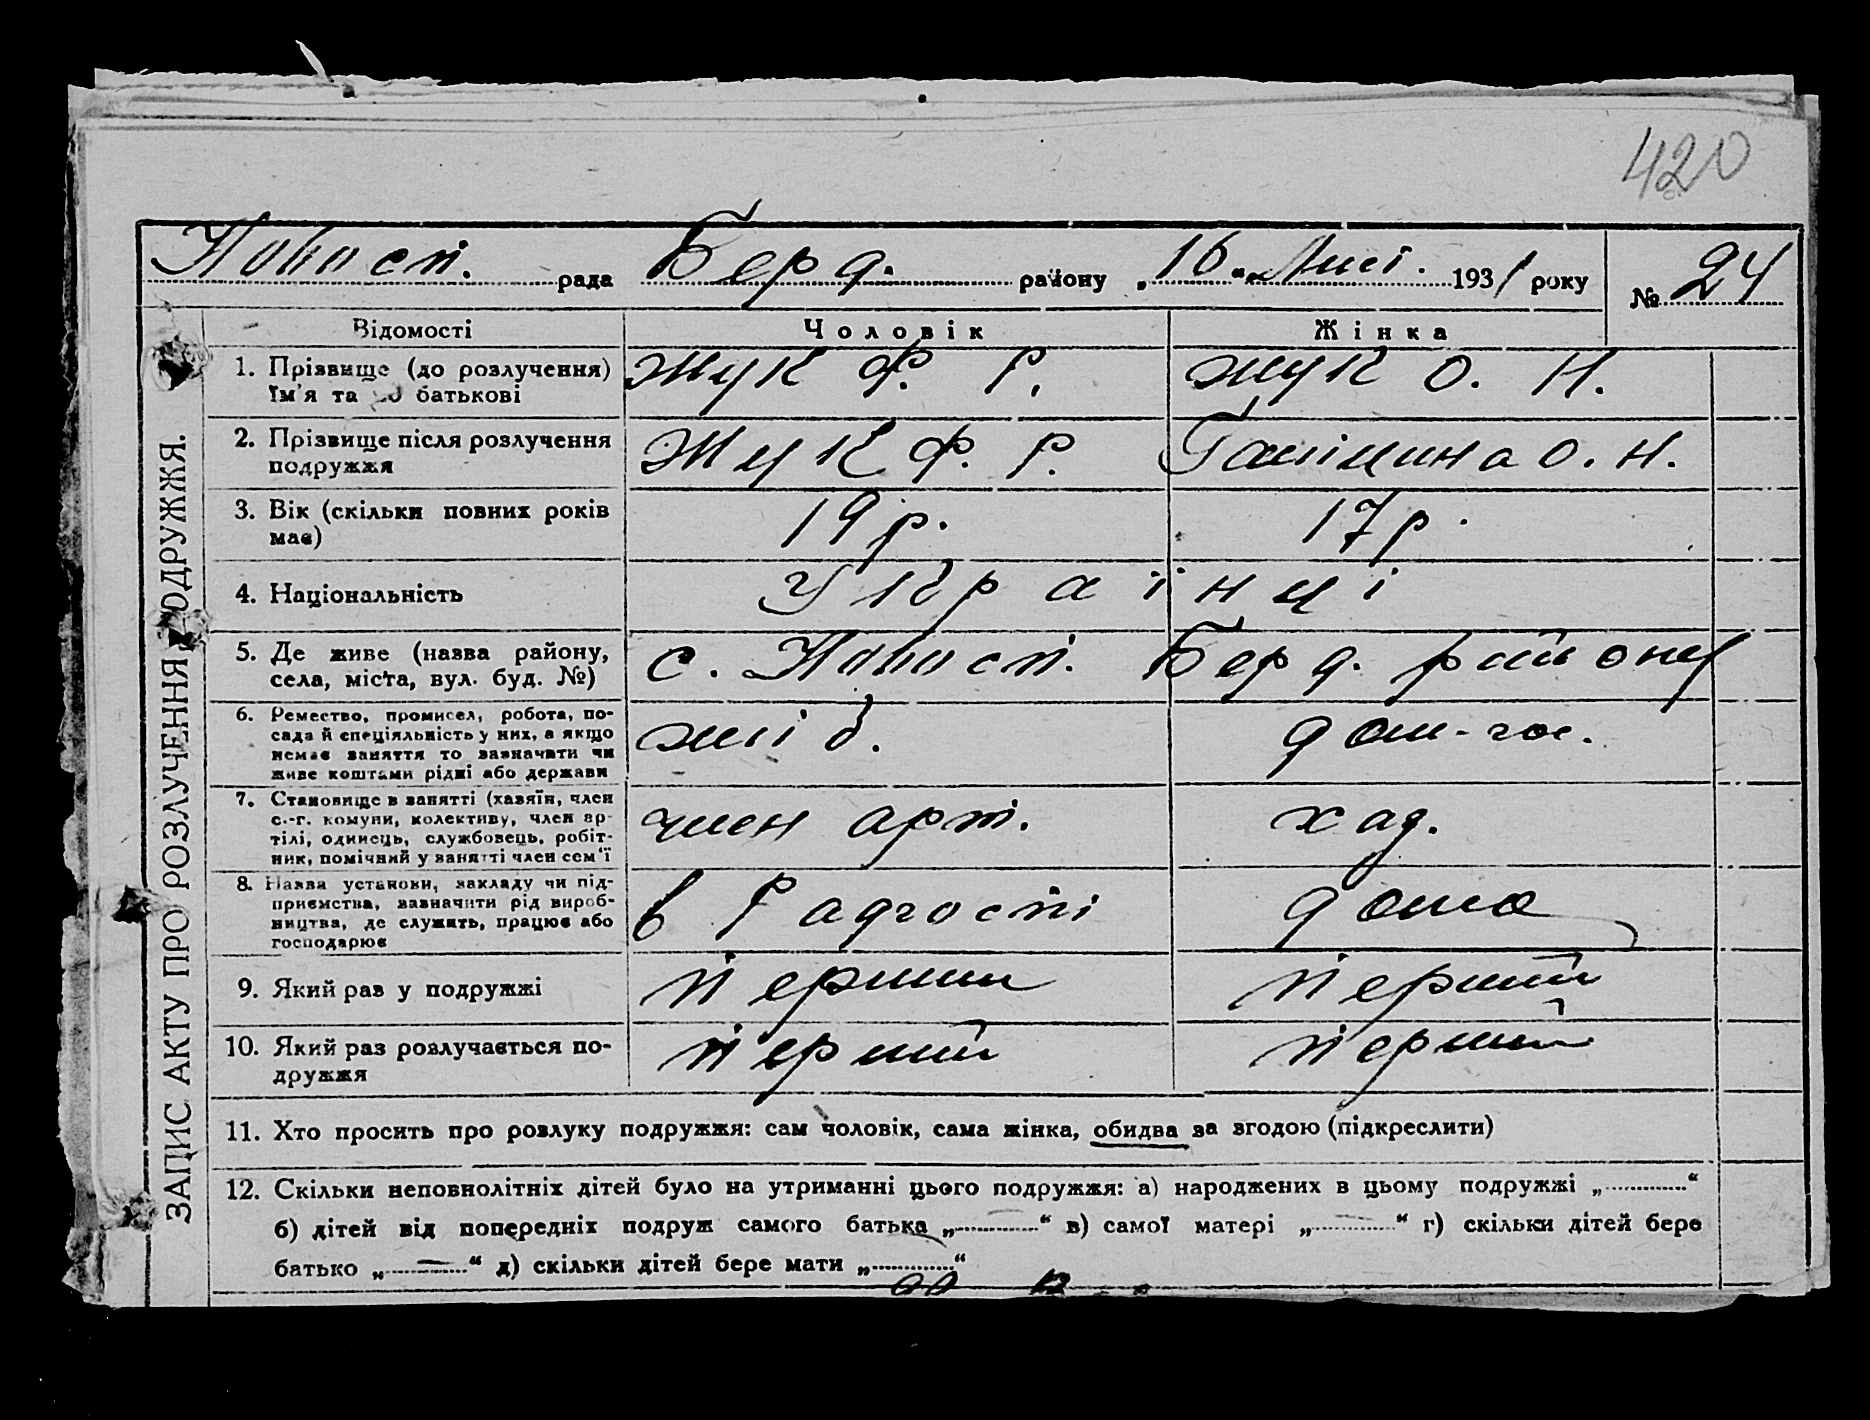 420
Новосп. рада Берд. району „16“ Лист. 1931 року № 24
ЗАПИС АКТУ ПРО РОЗЛУЧЕННЯ ПОДРУЖЖЯ.
Відомості Чоловік Жінка
1. Прізвище (до розлучення) Жук Ф. Р. Жук О. Н.
Їм'я та по батькові
2. Прізвище після розлучення Жук Ф. Р. О. Н.
подружжя
3. Вік (скільки повних років 19 р. 17 р.
має)
4. Національність Українці
5. Де живе (назва району, с. Новосп. Берд. району
села, міста, вул. буд. №)
6. Ремество, промисел, робота, по-
сада й спеціяльність у них, а якщо хліб. дом-гос.
немає заняття то зазначити чи
живе коштами рідні або держави
7. Становище в занятті (хазяїн, член
с.-г. комуни, колективу, член ар- член арт. хад.
тілі, одинець, службовець, робіт-
ник, помічний у занятті член сем'ї
8. Назва установи, закладу чи під-
приємства, зазначити рід вироб- в Радгоспі дома
ництва, де служить, працює або
господарює
9. Який раз у подружжі перший перший
10. Який раз розлучається по- перший перший
дружжя
11. Хто просить про розлуку подружжя: сам чоловік, сама жінка, обидва за згодою (підкреслити)
12. Скільки неповнолітніх дітей було на утриманні цього подружжя: а) народжених в цьому подружжі „.............“
б) дітей від попередніх подруж самого батька „—“ в) самої матері „—“ г) скільки дітей бере
батько „—“ д) скільки дітей бере мати „—“